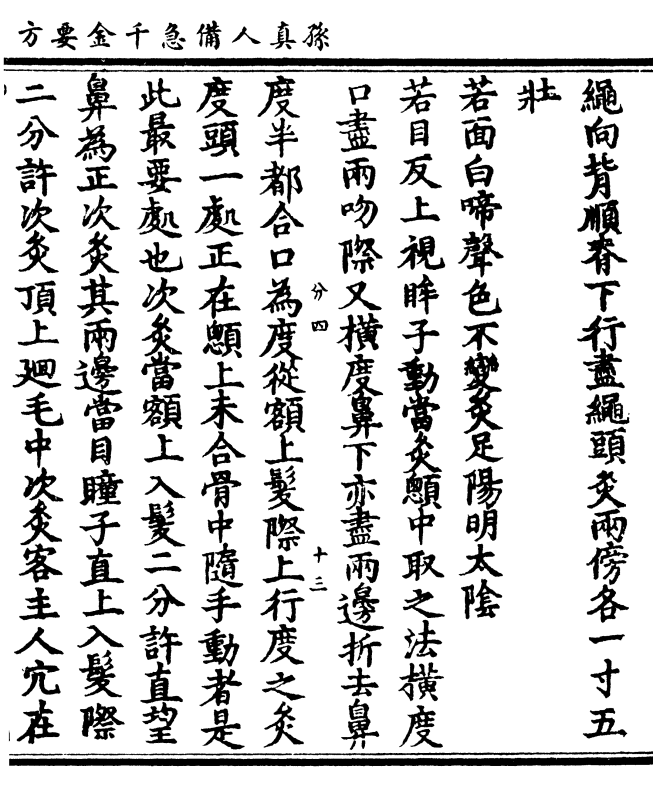 孫真人備急千金要方
繩向背順脊下行盡繩頭灸兩傍各一寸五
壯
若面白啼聲色不變灸足陽明太陰
若目反上視眸子動當灸顖中取之法橫度
口盡兩吻際又橫度鼻下亦盡兩邊折去鼻
度半都合口為度從額上髮際上行度之灸
度頭一處正在顖上未合骨中隨手動者是
此最要處也次灸當額上入髮二分許直望
鼻為正次灸其兩邊當目瞳子直上入髮際
二分許次灸頂上廻毛中次灸客主人穴在
分四
十三